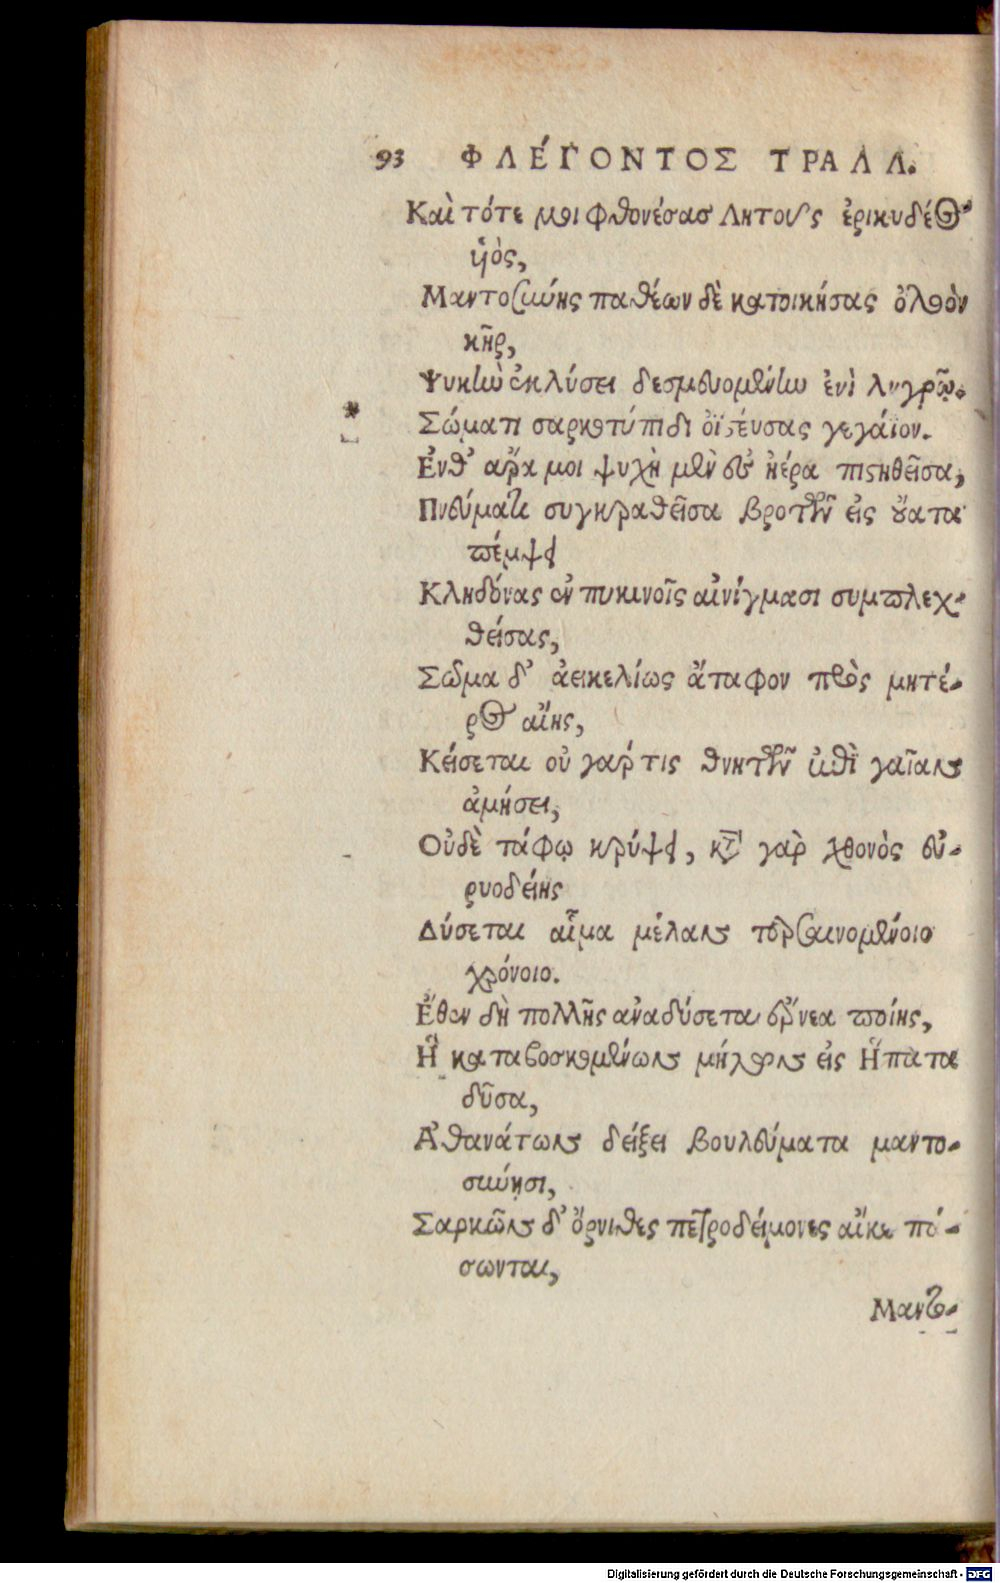 93 ΦΛΈΓΟΝΤΟΣ ΤΡΑΛΛ.
Καὶ τότε μοι φθονέσας Λητοῦς ἐρικυδέος
ὑὸς,
Μαντοσύνης παθέων δὲ κατοικήσας ὀλοὸν
κῆρ,
Ψυκὴν ἐκλύσει δεσμευομένην ἐνὶ λυγρῷ.
* Σώματι σαρκοτύπιδι ὀϊστεύσας γεγάϊον.
Ἐνθ' ἄρα μοι ψυχὴ μὲν εὖ ἠέρα πιστηθεῖσα,
Πνεύματι συγκραθεῖσα βροτῶν εἰς οὔατα
πέμψει
Κληδόνας ἐν πυκινοῖς αἰνίγμασι συμπλεχ-
θείσας,
Σῶμα δ' ἀεικελίως ἄταφον πρὸς μητέ-
ρος αἴης,
Κείσεται οὐ γάρ τις θνητῶν ἐπὶ γαῖαν
ἀμήσει,
Οὐδὲ τάφῳ κρύψει, κατὰ γὰρ χθονὸς εὐ-
ρυοδείης
Δύσεται αἷμα μέλαν τερσαινομένοιο
χρόνοιο.
Ἔθεν δὴ πολλῆς ἀναδύσεται ἔρνεα ποίης,
Ἣ καταβοσκομένων μήλων εἰς Ἥπατα
δῦσα,
Ἀθανάτων δείξει βουλεύματα μαντο-
σύνησι,
Σαρκῶν δ' ὄρνιθες πετροδείμονες αἴκε πά-
σωνται,
Μαντο-
Digitalisierung gefördert durch die Deutsche Forschungsgemeinschaft - DFG